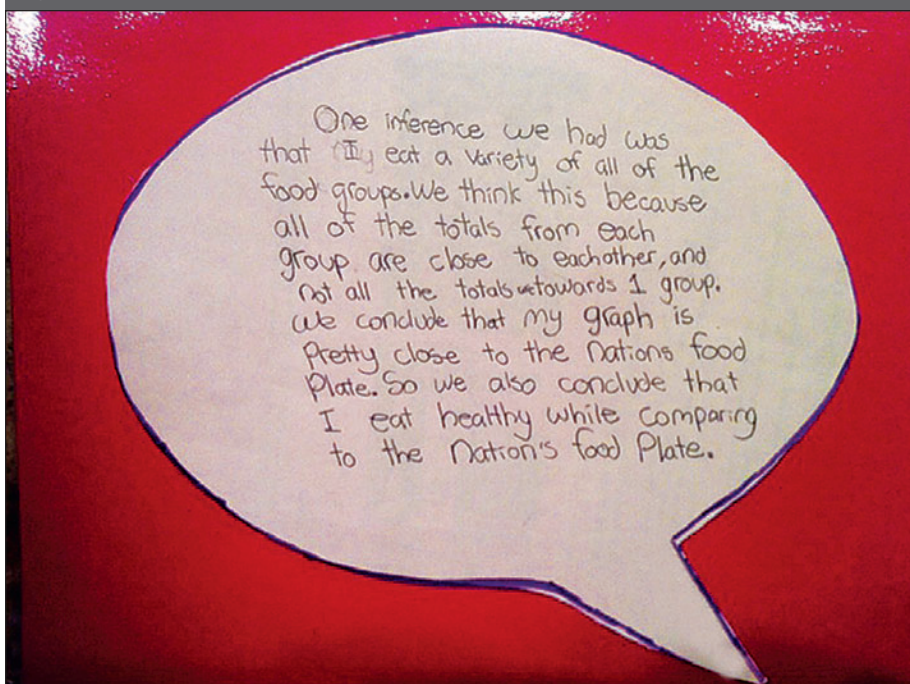 One inference we had was
that I eat a variety of all of the
food groups.We think this because
all of the totals from each
group are close to eachother, and
not all the totals towards 1 group.
We conclude that my graph is
Pretty close to the Nations food
Plate. So we also conclude that
I eat healthy while comparing
to the Nation's food Plate.